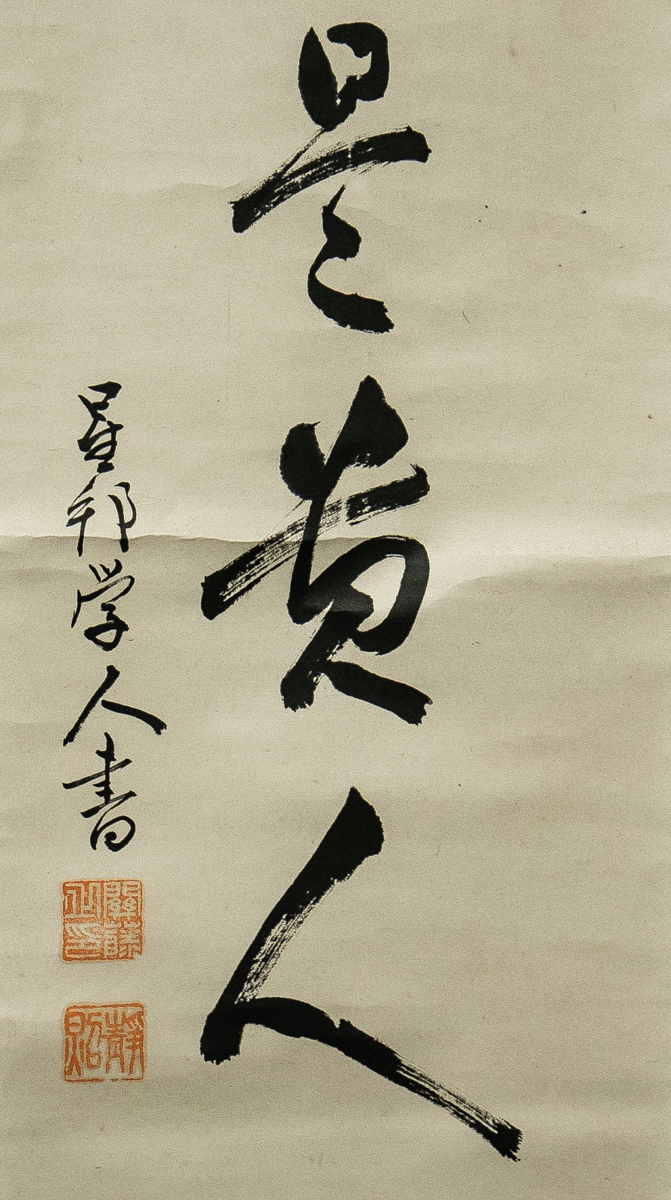 是貴人
星邦学人書